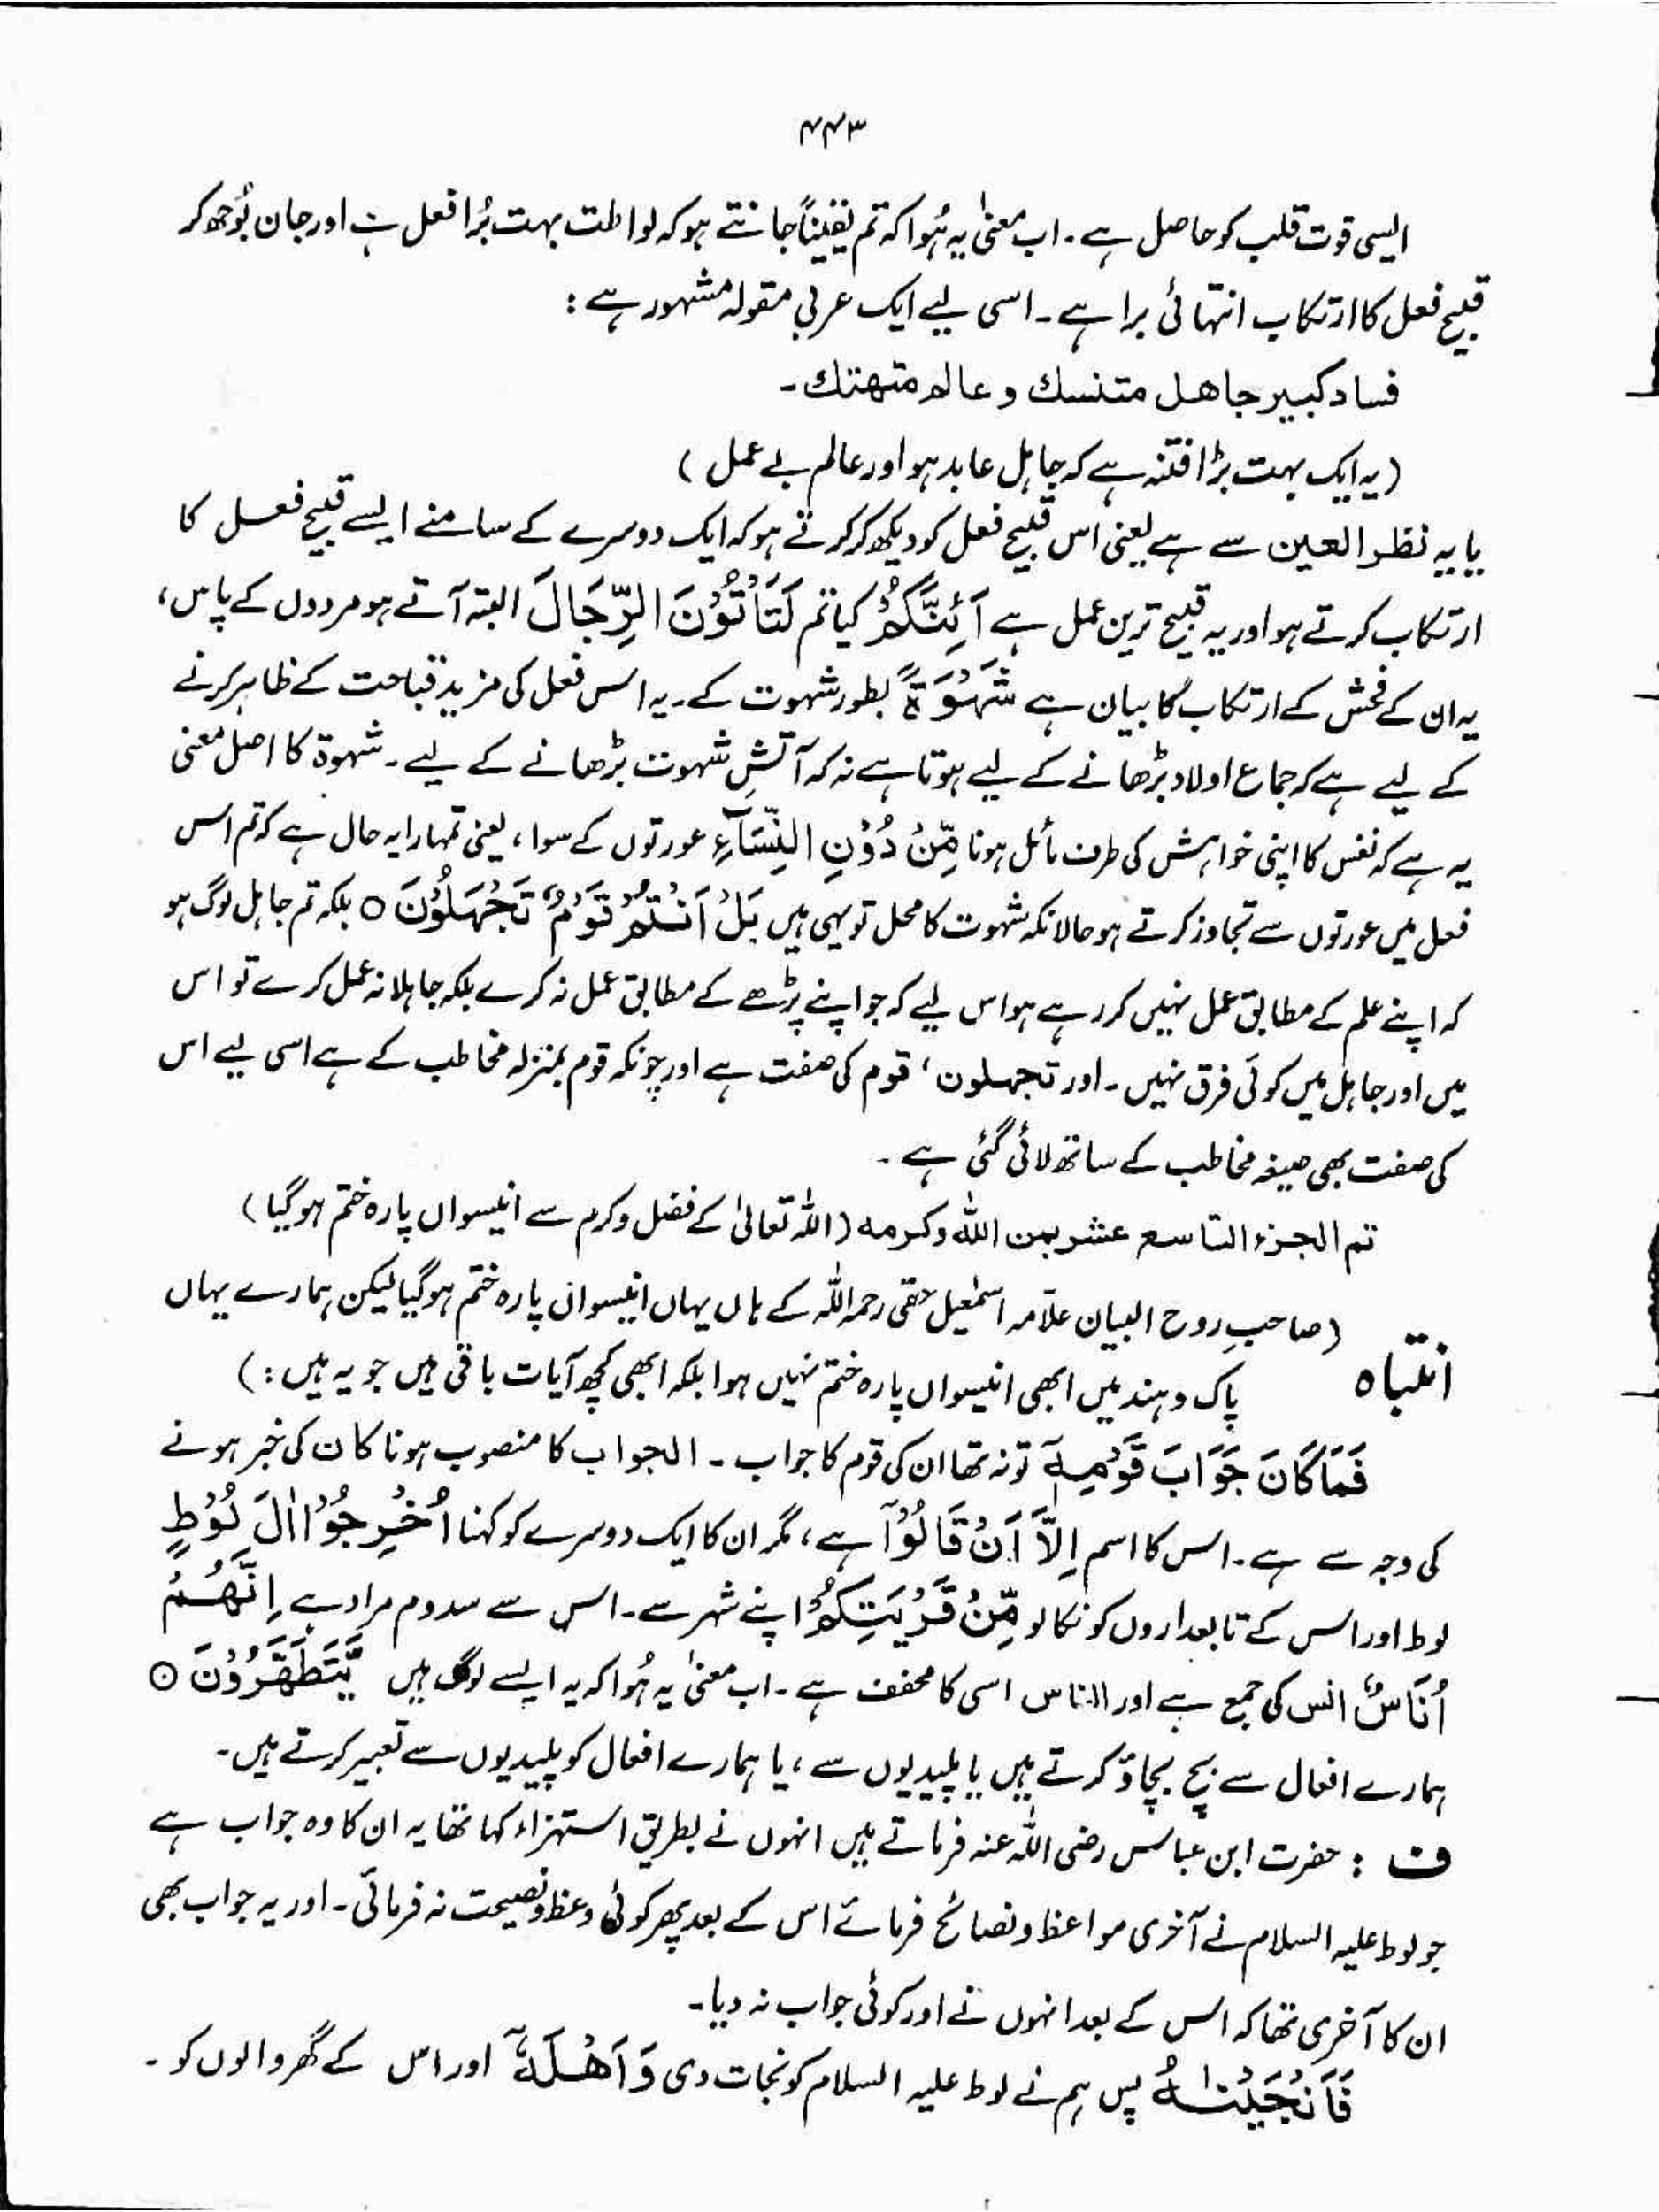 ۴۴۳
ایسی قوت قلب کو حاصل ہے۔ اب معنیٰ یہ ہُوا کہ تم یقیناً جانتے ہو کہ لواطت بہت بُرا فعل ہے اور جان بُوجھ کر
قبیح فعل کا ارتکاب انتہائی برا ہے۔ اسی لیے ایک عربی مقولہ مشہور ہے :
فساد کبیر جاھل متنسك و عالم متھتك۔
(یہ ایک بہت بڑا فتنہ ہے کہ جاہل عابد ہو اور عالم بے عمل )
یا یہ نظر العین سے ہے یعنی اس قبیح فعل کو دیکھ کر کرتے ہو کہ ایک دوسرے کے سامنے ایسے قبیح فعل کا
ارتکاب کرتے ہو اور یہ قبیح ترین عمل ہے اَئِنَّكُمْ کیا تم لَتَاْتُوْنَ الرِّجَالَ البتہ آتے ہو مردوں کے پاس،
یہ ان کے فحش کے ارتکاب کا بیان ہے شَهْوَةً بطور شہوت کے۔ یہ اس فعل کی مزید قباحت کے ظاہر کرنے
کے لیے ہے کہ جماع اولاد بڑھانے کے لیے ہوتا ہے نہ کہ آتشِ شہوت بڑھانے کے لیے۔ شہوة کا اصل معنی
یہ ہے کہ نفس کا اپنی خواہش کی طرف مائل ہونا مِّنْ دُوْنِ النِّسَآءِ عورتوں کے سوا، یعنی تمہارا یہ حال ہے کہ تم اس
فعل میں عورتوں سے تجاوز کرتے ہو حالانکہ شہوت کا محل تو یہی ہیں بَلْ اَنْتُمْ قَوْمٌ تَجْهَلُوْنَ ○ بلکہ تم جاہل لوگ ہو
کہ اپنے علم کے مطابق عمل نہیں کر رہے ہو اس لیے کہ جو اپنے پڑھے کے مطابق عمل نہ کرے بلکہ جاہلانہ عمل کرے تو اس
میں اور جاہل میں کوئی فرق نہیں۔ اور تجھلون، قوم کی صفت ہے اور چونکہ قوم بمنزلہ مخاطب کے ہے اسی لیے اس
کی صفت بھی صیغہ مخاطب کے ساتھ لائی گئی ہے۔
تم الجزء التاسع عشر بمن اللّٰہ وکرمہ (اللہ تعالیٰ کے فضل و کرم سے انیسواں پارہ ختم ہو گیا)
(صاحبِ روح البیان علّامہ اسمٰعیل حقی رحمہ اللہ کے ہاں یہاں انیسواں پارہ ختم ہو گیا لیکن ہمارے یہاں
انتباہ پاک و ہند میں ابھی انیسواں پارہ ختم نہیں ہوا بلکہ ابھی کچھ آیات باقی ہیں جو یہ ہیں :)
فَمَا كَانَ جَوَابَ قَوْمِهٖٓ تو نہ تھا ان کی قوم کا جواب۔ الجواب کا منصوب ہونا کان کی خبر ہونے
کی وجہ سے ہے۔ اس کا اسم اِلَّآ اَنْ قَالُوْٓا ہے، مگر ان کا ایک دوسرے کو کہنا اَخْرِجُوْٓا اٰلَ لُوْطٍ
لوط اور اس کے تابعداروں کو نکالو مِّنْ قَرْيَتِكُمْ اپنے شہر سے۔ اس سے سدوم مراد ہے اِنَّهُمْ
اُنَاسٌ انس کی جمع ہے اور الناس اسی کا مخفف ہے۔ اب معنیٰ یہ ہُوا کہ یہ ایسے لوگ ہیں يَّتَطَهَّرُوْنَ ⊙
ہمارے افعال سے بچ بچاؤ کرتے ہیں یا پلیدیوں سے، یا ہمارے افعال کو پلیدیوں سے تعبیر کرتے ہیں۔
ف : حضرت ابن عباس رضی اللہ عنہ فرماتے ہیں انہوں نے بطریق استہزاء کہا تھا یہ ان کا وہ جواب ہے
جو لوط علیہ السلام نے آخری مواعظ و نصائح فرمائے اس کے بعد پھر کوئی وعظ و نصیحت نہ فرمائی۔ اور یہ جواب بھی
ان کا آخری تھا کہ اس کے بعد انہوں نے اور کوئی جواب نہ دیا۔
فَاَنْجَيْنٰهُ پس ہم نے لوط علیہ السلام کو نجات دی وَ اَهْلَهٗٓ اور اس کے گھر والوں کو۔